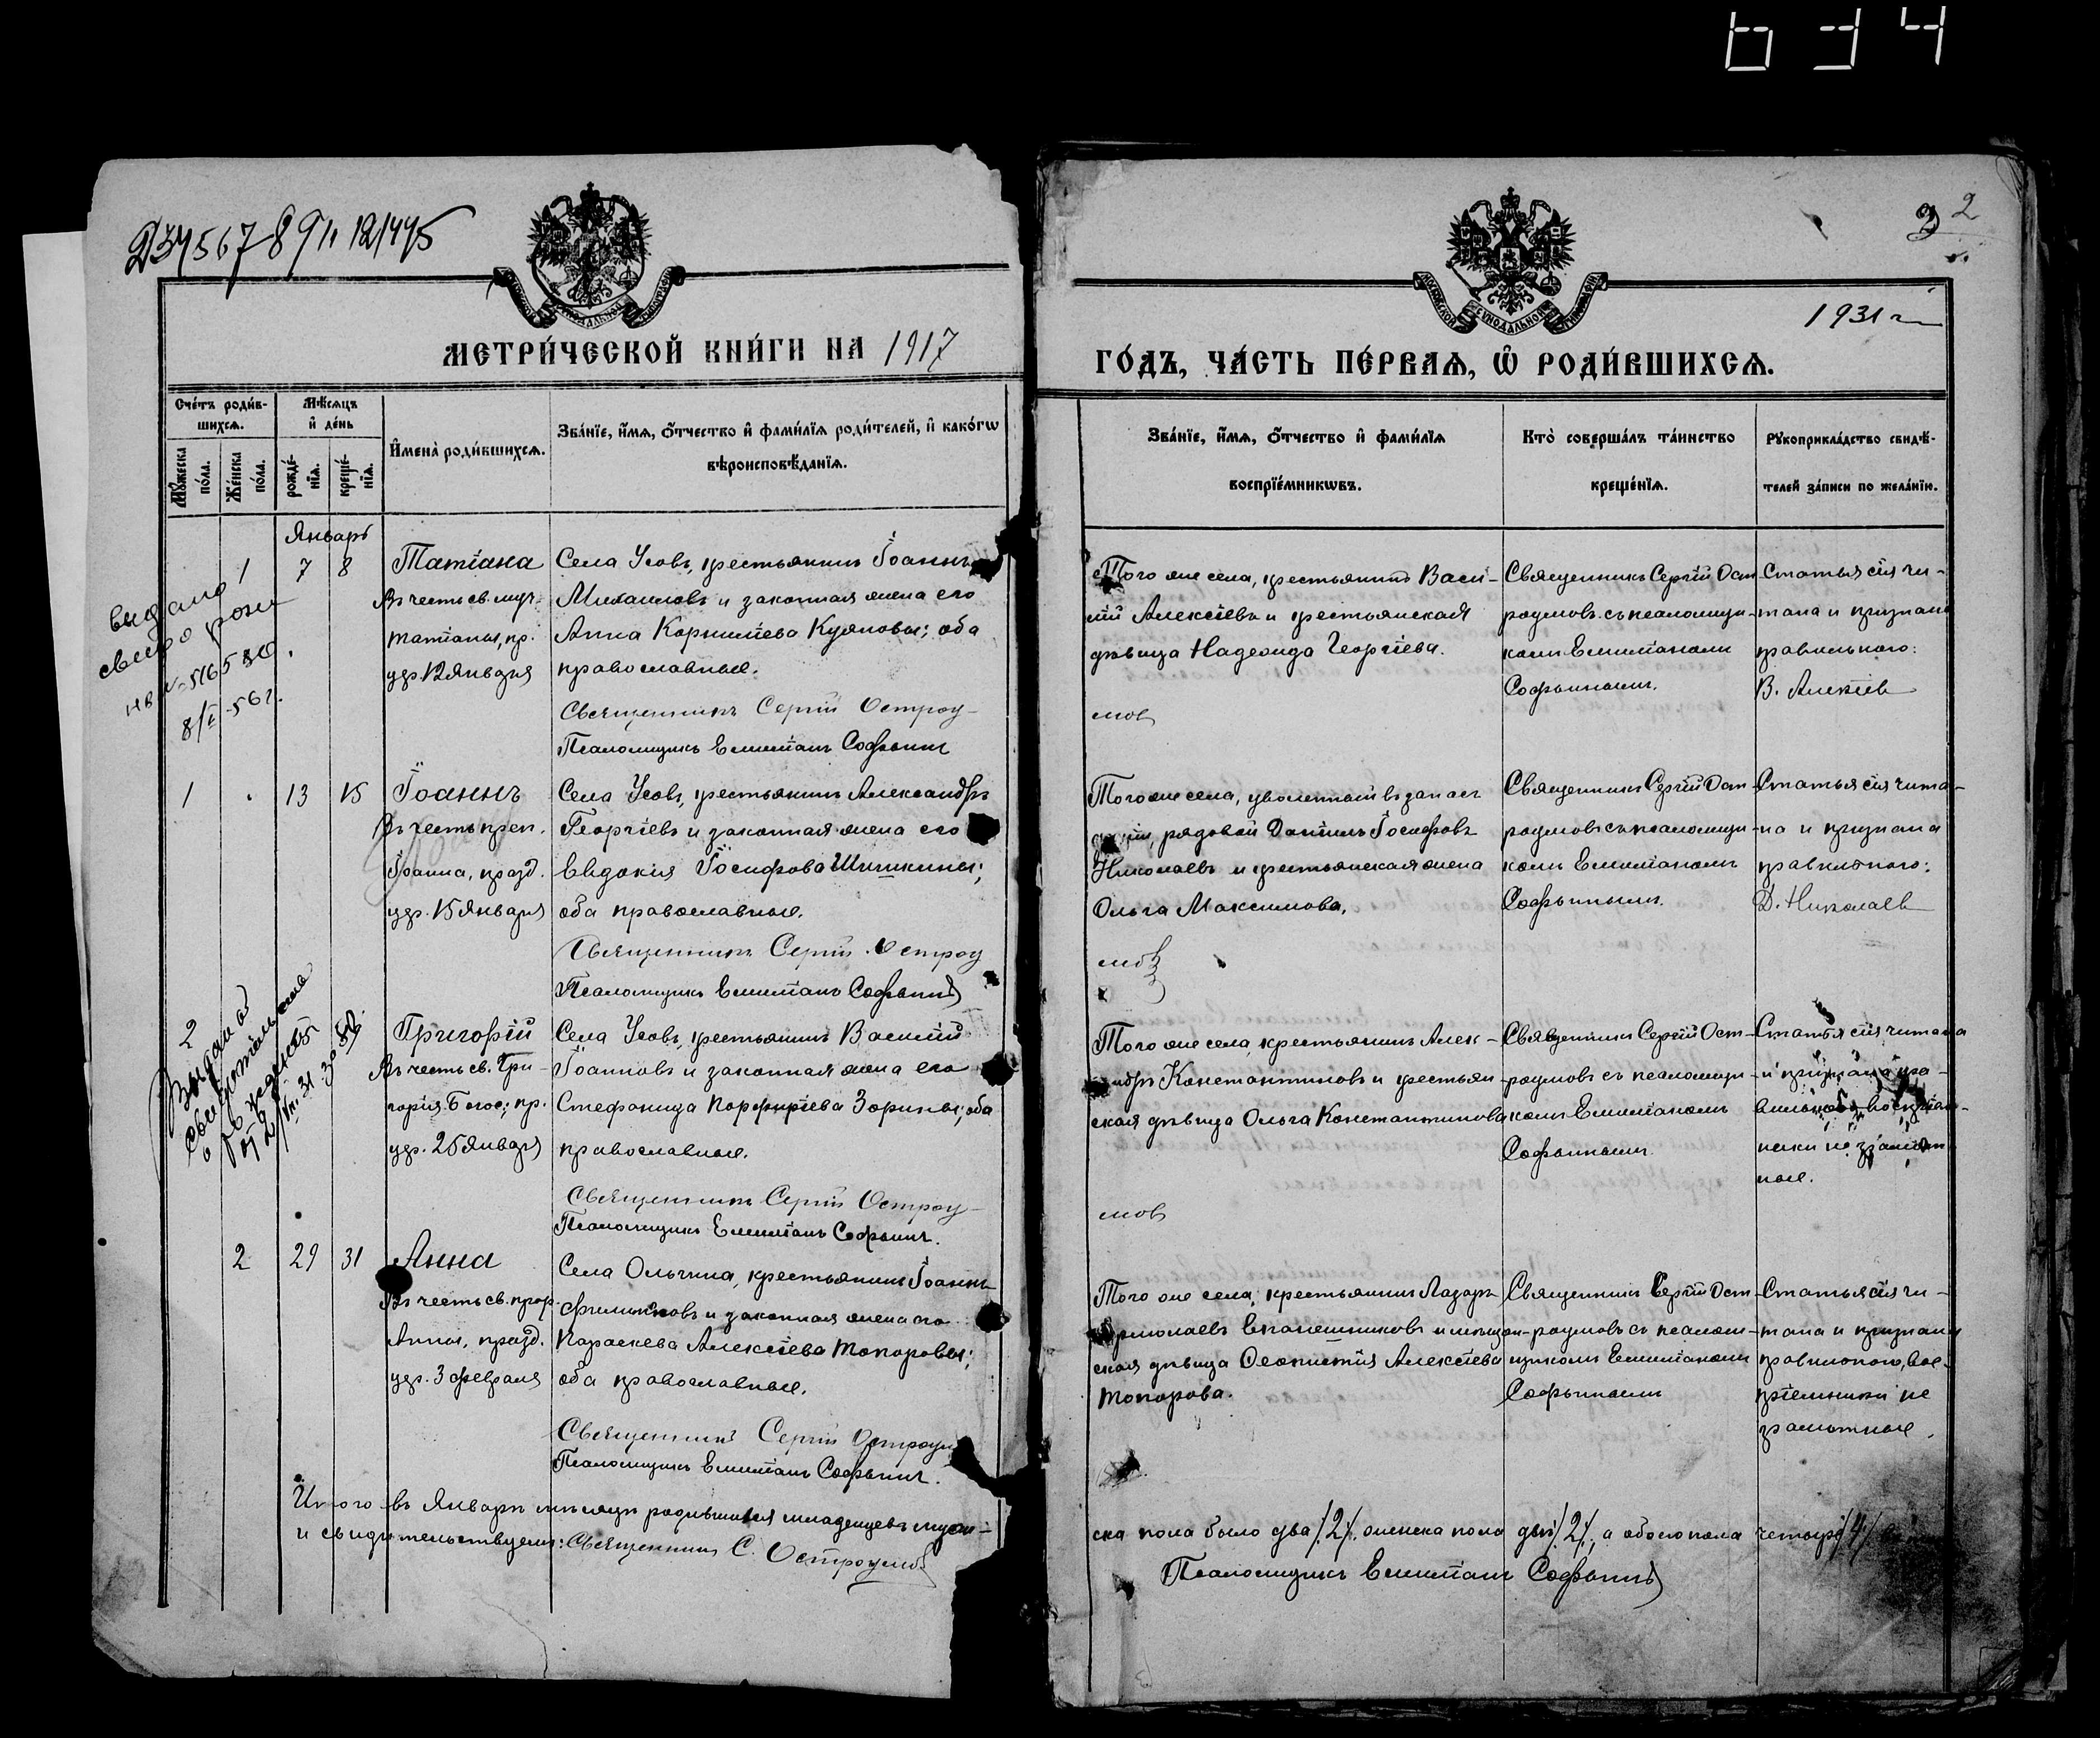 634
2
1931 г
МЕТРИ́ЧЕСКОЙ КНИ́ГИ НА 1917
ГО́ДЪ, ЧА́СТЬ ПЕ́РВАѦ, Ѡ҆ РОДИ́ВШИХСѦ.
Сче́тъ роди́в-
шихсѧ.
Мѣ́сѧцъ
и҆ де́нь
Мꙋ́жеска
по́ла.
Же́нска
по́ла.
рожде́-
нїѧ.
креще́-
нїѧ.
И҆мена̀ роди́вшихсѧ.
Зва́нїе, и҆́мѧ, ѻ҆́тчество и҆ фами́лїѧ роди́телей, и҆ како́гѡ
вѣроисповѣ́данїѧ.
Зва́нїе, и҆́мѧ, ѻ҆́тчество и҆ фами́лїѧ
воспрїе́мникѡвъ.
Кто̀ соверша́лъ та́инство
креще́нїѧ.
Рꙋкоприкла́дство свидѣ́-
телей за́писи по жела́нїю.
Январь
1 7 8
Татіана
Въ честь св. муч.
Татіаны, пр.
удр. 12 января
Села Усовъ, крестьянинъ Іоаннъ
Михаиловъ и законная жена его
Анна Корниліева Куяновы; оба
православные.
Священникъ Сергій Остроу-
Псаломщикъ Емиліанъ Софьинъ
Того же села, крестьянинъ Васи-
лій Алексіевъ и крестьянская
дѣвица Надежда Георгіева.
мовъ
Священникъ Сергій Ост-
роумовъ съ псаломщи-
комъ Емиліаномъ
Софьинымъ.
Статья сія чи-
тана и признана
правильною:
В. Алексіев
выдано
8/I-56 г.
1 13 15
Іоаннъ
Въ честь преп.
Іоанна, празд.
удр. 15 января
Села Усовъ, крестьянинъ Александръ
Георгіевъ и законная жена его
Евдокія Іосифова Шишкины;
оба православные.
Священникъ Сергій Остроу
Псаломщикъ Емиліанъ Софьинъ
Того же села, уволенный въ запасъ
рядовой Даніилъ Іосифовъ
Николаевъ и крестьянская жена
Ольга Максимова.
мовъ
Священникъ Сергій Ост-
роумовъ съ псаломщи-
комъ Емиліаномъ
Софьинымъ.
Статья сія чита-
на и признана
правильною:
Д. Николаев
2
Выдано
свидетельство
о рождении
Григорій
Въ честь св. Гри-
горія Богос; пр.
удр. 25 января
Села Усовъ, крестьянинъ Василій
Іоанновъ и законная жена его
Стефанида Порфиріева Зорины; оба
православные.
Священникъ Сергій Остроу-
Псаломщикъ Емиліанъ Софьинъ.
Того же села, крестьянинъ Алек-
андръ Константиновъ и крестьян-
ская дѣвица Ольга Константинова
мовъ
Священникъ Сергій Ост-
роумовъ съ псаломщи-
комъ Емиліаномъ
Софьинымъ.
Статья сія читана
и признана пра-
вильною, воспріем-
ники не грамот-
ные.
2 29 31
Анна
Въ честь св. прор.
Анны, празд.
удр. 3 февраля
Села Ольгина, крестьянинъ Іоаннъ
Филипповъ и законная жена его
Параскева Алексіева Топоровы;
оба православные.
Священникъ Сергій Остроум
Псаломщикъ Емиліанъ Софьинъ.
Того же села, крестьянинъ Лазарь
Ермолаевъ Епанешниковъ и мѣщан-
ская дѣвица Ѳеоктистія Алексіева
Топорова.
Священникъ Сергій Ост-
роумовъ съ псалом-
щикомъ Емиліаномъ
Софьинымъ
Статья сія чи-
тана и признана
правильною, вос-
пріемники не
грамотные.
Итого въ Январѣ мѣсяцѣ родившихся младенцевъ муже-
ска пола было два /2/, женска пола двѣ /2/, а обоего пола четыре /4/
и свидѣтельствуемъ: Священникъ С. Остроумовъ
Псаломщикъ Емиліанъ Софьинъ